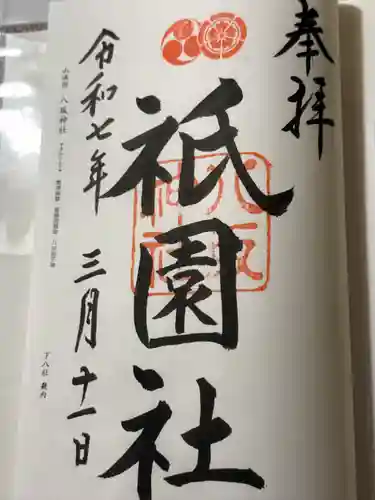 奉拝
祇園社
八坂
神社
令和七年 三月十一日
八坂神社